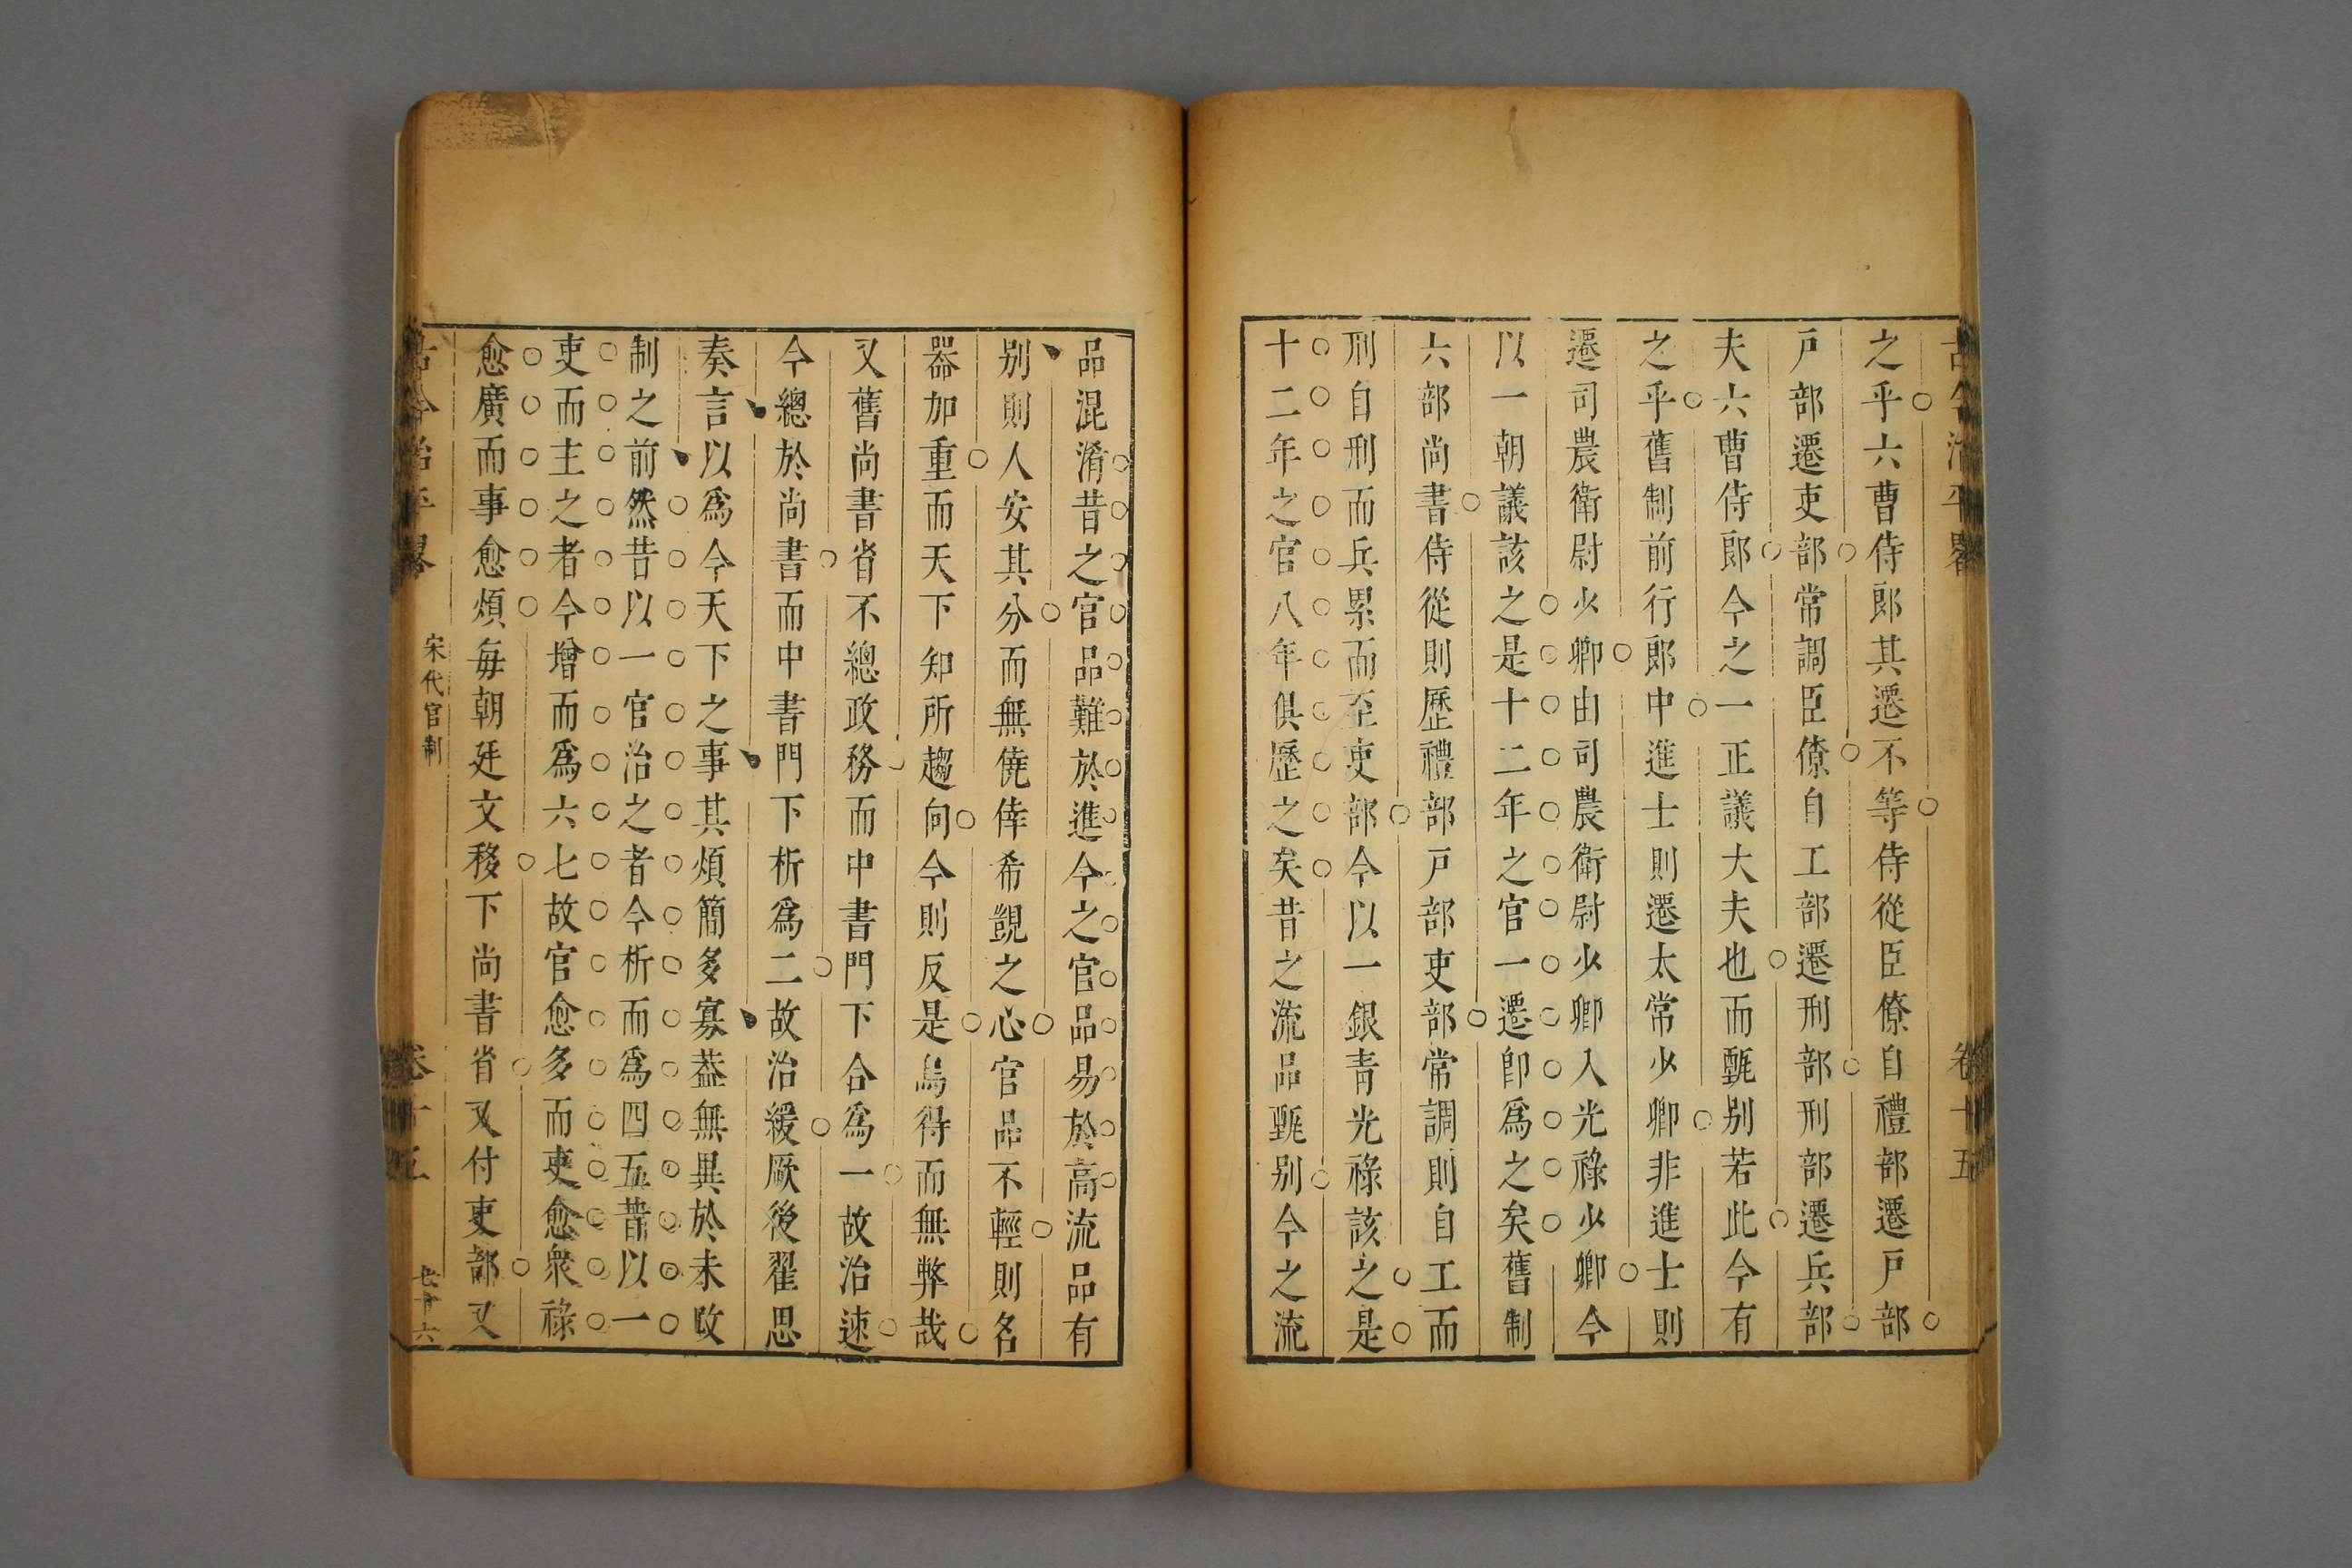 古今治平畧 卷十五
之乎六曹侍郎其遷不等侍從臣僚自禮部遷戸部
戸部遷吏部常調臣僚自工部遷刑部刑部遷兵部
夫六曹侍郎今之一正議大夫也而甄别若此今有
之乎舊制前行郎中進士則遷太常少卿非進士則
遷司農衛尉少卿由司農衛尉少卿入光祿少卿今
以一朝議該之是十二年之官一遷卽爲之矣舊制
六部尚書侍從則歷禮部戸部吏部常調則自工而
刑自刑而兵累而至吏部今以一銀青光祿該之是
十二年之官八年俱歷之矣昔之流品甄别今之流
品混淆昔之官品難於進今之官品易於高流品有
别則人安其分而無僥倖希覬之心官品不輕則名
器加重而天下知所趨向今則反是烏得而無弊哉
又舊尚書省不總政務而中書門下合爲一故治速
今總於尚書而中書門下析爲二故治緩厥後翟思
奏言以爲今天下之事其煩簡多寡葢無異於未改
制之前然昔以一官治之者今析而爲四五昔以一
吏而主之者今增而爲六七故官愈多而吏愈衆祿
愈廣而事愈煩毎朝廷文移下尚書省又付吏部又
古今治平畧 宋代官制 卷十五 七十六